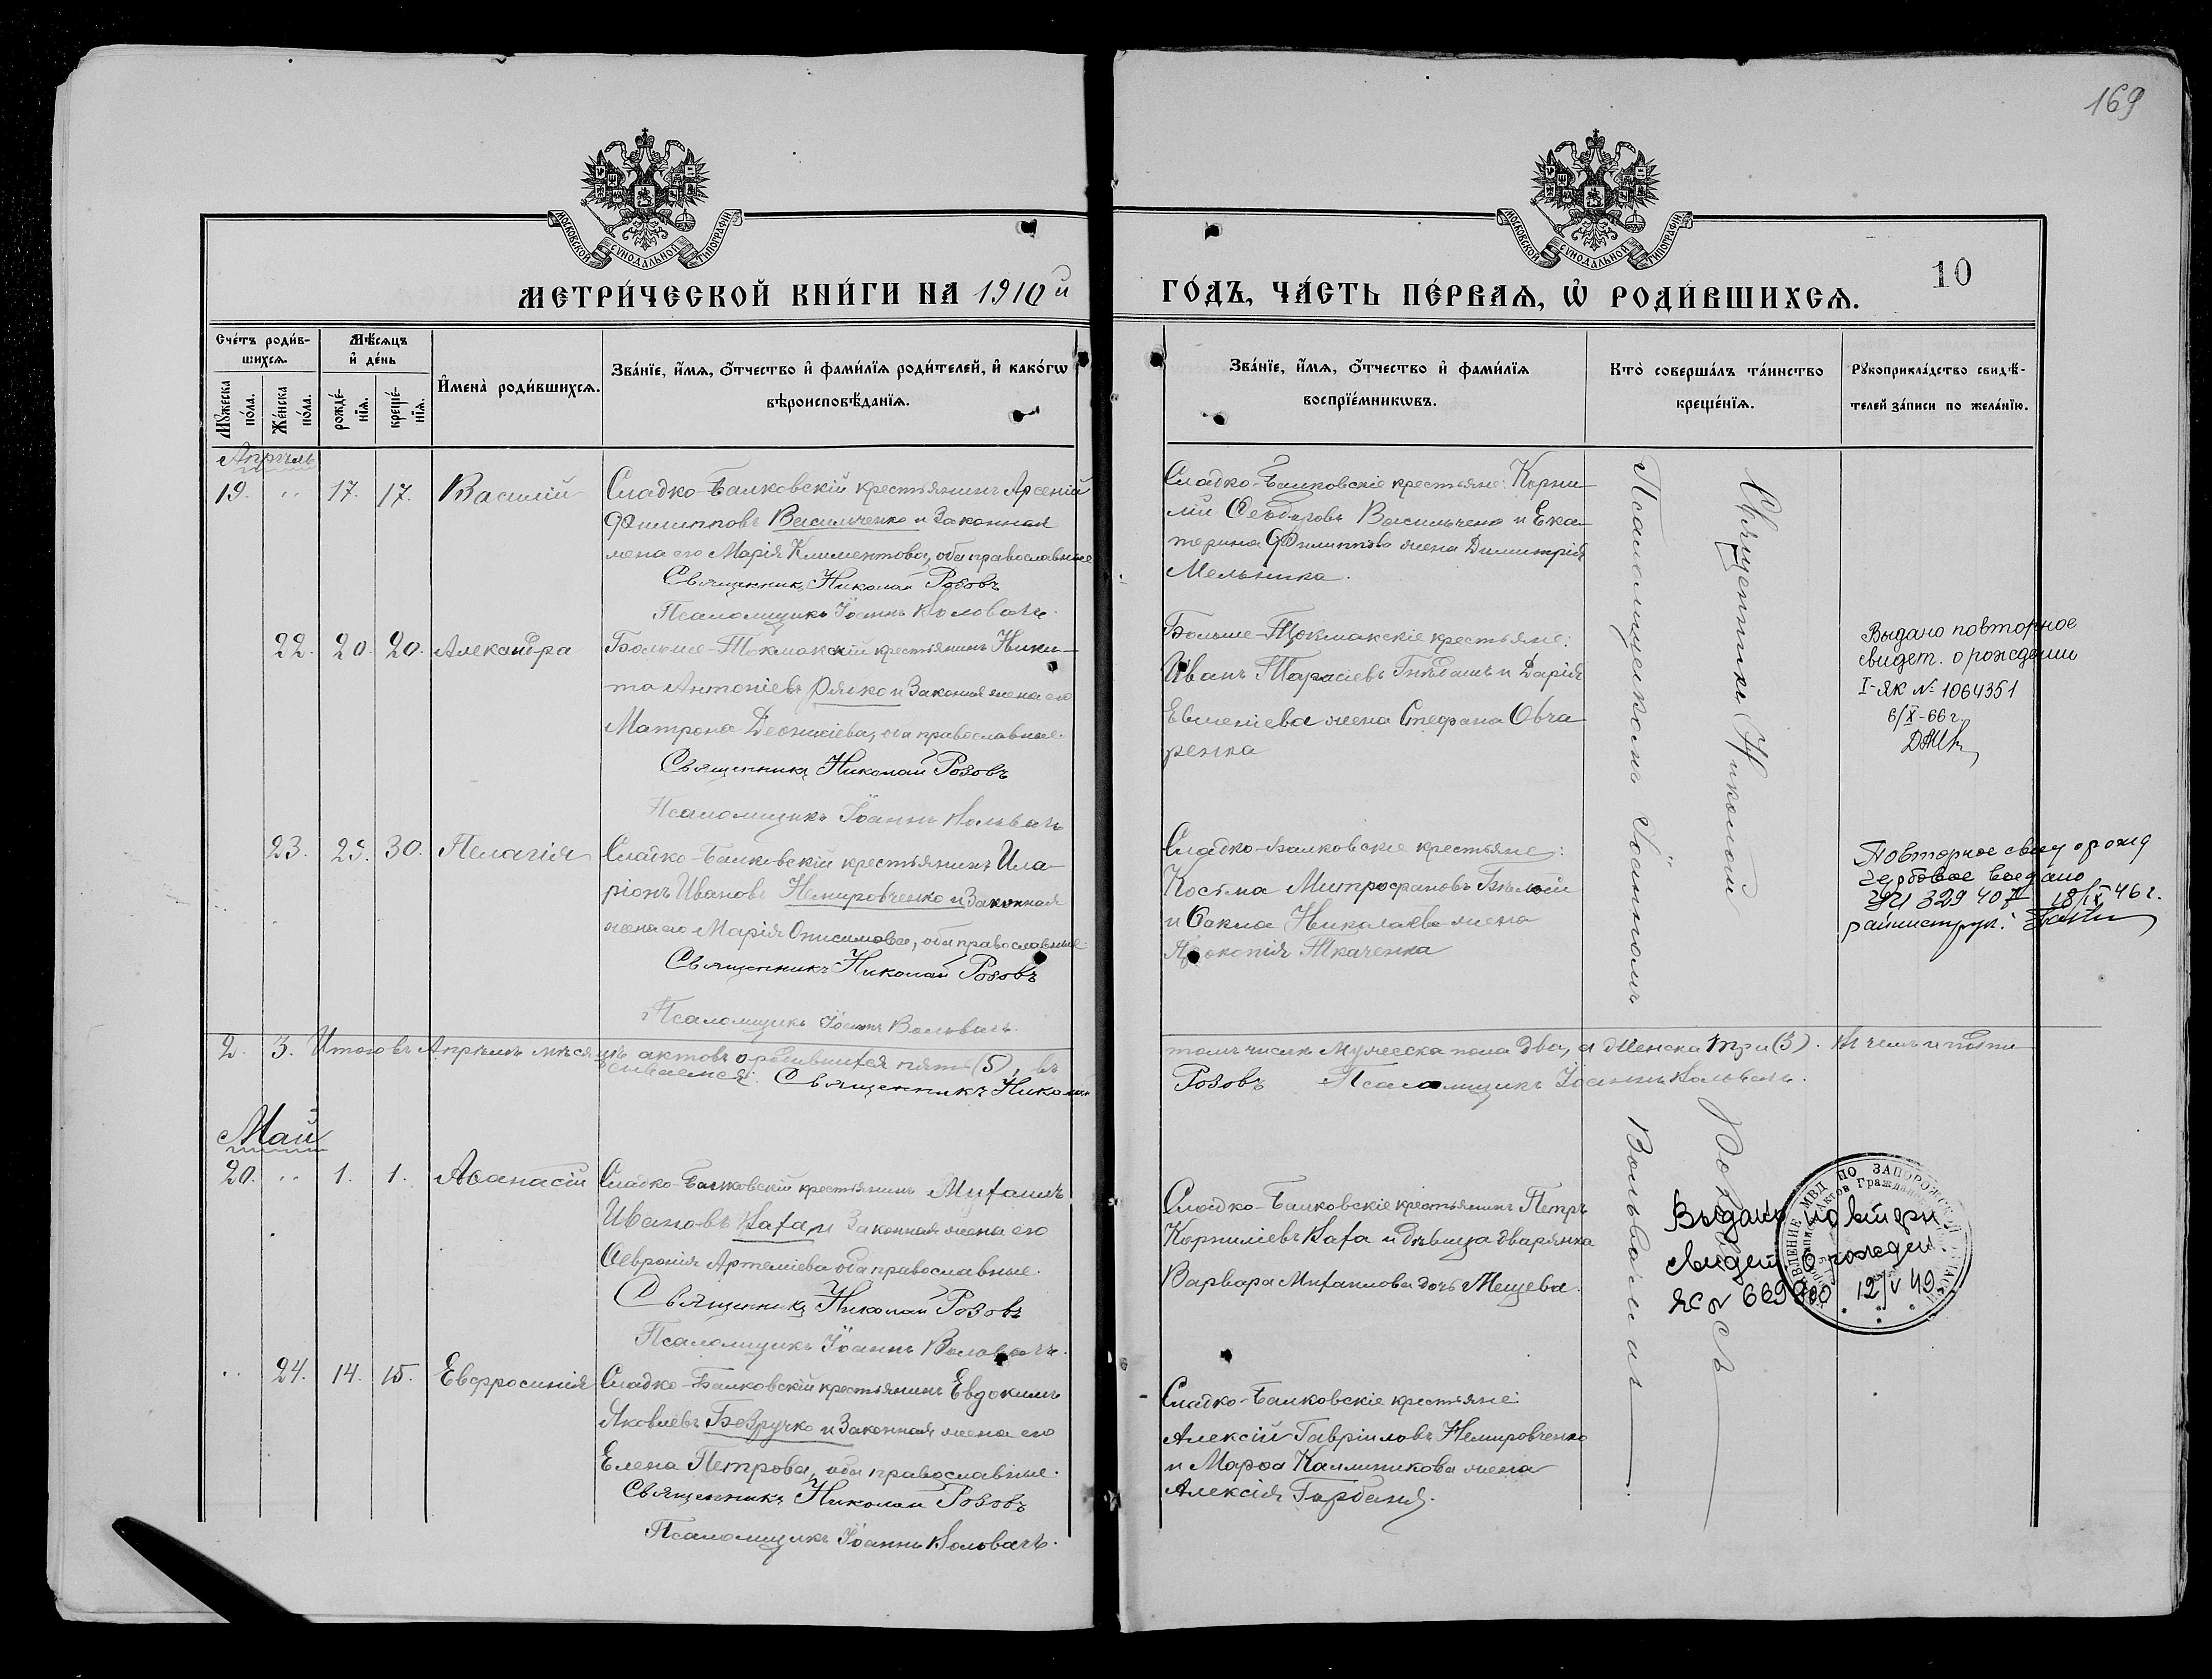 169
МОСКОВСКОЙ СѴНОДАЛЬНОЙ ТИПОГРАФІИ
МОСКОВСКОЙ СѴНОДАЛЬНОЙ ТИПОГРАФІИ
МЕТРИ́ЧЕСКОЙ КНИ́ГИ НА 1910й
ГО́ДЪ, ЧА́СТЬ ПЕ́РВАѦ, Ѡ҆ РОДИ́ВШИХСѦ.
10
Сче́тъ роди́в-
шихсѧ.
Мꙋ́жеска по́ла.
Же́нска по́ла.
Мѣ́сѧцъ
и҆ де́нь
рожде́-
нїѧ.
креще́-
нїѧ.
И҆мена̀ роди́вшихсѧ.
Зва́нїе, и҆́мѧ, ѻ҆́тчество и҆ фами́лїѧ роди́телей, и҆ како́гѡ
вѣроисповѣ́данїѧ.
Зва́нїе, и҆́мѧ, ѻ҆́тчество и҆ фами́лїѧ
воспрїе́мникѡвъ.
Кто̀ соверша́лъ та́инство
креще́нїѧ.
Рꙋкоприкла́дство свидѣ́-
телей за́писи по жела́нїю.
Апрѣль
19. " 17. 17. Василій
Сладко-Балковскій крестьянинъ Арсеній
Филипповъ Васильченко и законная
жена его Марія Климентова, оба православные
Священникъ Николай Розовъ
Псаломщикъ Іоаннъ Воловачъ.
Сладко-Балковскіе крестьяне: Корни-
лій Ѳеодоровъ Васильченко и Ека-
терина Филиппова жена Димитрія
Мельника.
22. 20. 20. Александра
Больше-Токмакскій крестьянинъ Ники-
та Антоніевъ Ряжко и законная жена его
Матрона Деонисіева, оба православные.
Священникъ Николай Розовъ
Псаломщикъ Іоаннъ Воловачъ
Больше-Токмакскіе крестьяне:
Иванъ Тарасіевъ Гнѣдашъ и Дарія
Евменіева жена Стефана Овча-
ренка
Выдано повторное
свидет. о рождении
I-ЯК № 1064351
6/X-66г
23. 29. 30. Пелагія
Сладко-Балковскій крестьянинъ Ила-
ріонъ Ивановъ Немировченко и законная
жена его Марія Онисимова, оба православные.
Священникъ Николай Розовъ
Псаломщикъ Іоаннъ Воловачъ.
Сладко-Балковскіе крестьяне:
Косьма Митрофановъ Бѣлый
и Ѳекла Николаева жена
Прокопія Ткаченка
Повторное свид о рожд
гербовое выдано
329407 18/IX 46г.
2. 3. Итого въ Апрѣлѣ мѣсяцѣ актовъ о родившихся пять (5), въ
томъ числѣ Мужеска пола два, а Женска три (3). въ чемъ и подпи-
сываемся: Священникъ Николай
Розовъ Псаломщикъ Іоаннъ Воловачъ.
Май
20. " 1. 1. Аѳанасій
Сладко-Балковскій крестьянинъ Михаилъ
Ивановъ Хаха и законная жена его
Ѳевронія Артеміева оба православные.
Священникъ Николай Розовъ
Псаломщикъ Іоаннъ Воловачъ.
Сладко-Балковскіе крестьянинъ Петръ
Корниліевъ Хаха и дѣвица дворянка
Варвара Михаилова дочь Мещева.
Выдано повторн.
свидет. о рожден.
12/V 49
УПРАВЛЕНИЕ МВД ПО ЗАПОРОЖСКОЙ ОБЛАСТИ
" 24. 14. 15. Евфросинія
Сладко-Балковскій крестьянинъ Евдокимъ
Яковлевъ Безручко и законная жена его
Елена Петрова, оба православные.
Священникъ Николай Розовъ
Псаломщикъ Іоаннъ Воловачъ.
Сладко-Балковскіе крестьяне:
Алексій Гавріиловъ Немировченко
и Марѳа Каллиникова жена
Алексія Горбаня.
Священникъ Николай Розовъ съ
Псаломщикомъ Іоанномъ Воловачемъ